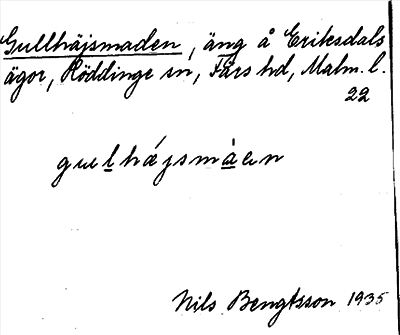 Gullhäjsmaden, äng å Eriksdals
ägor, Röddinge sn, Färs hd, Malm. l.
22
gulhæjsmàen
Nils Bengtsson 1935